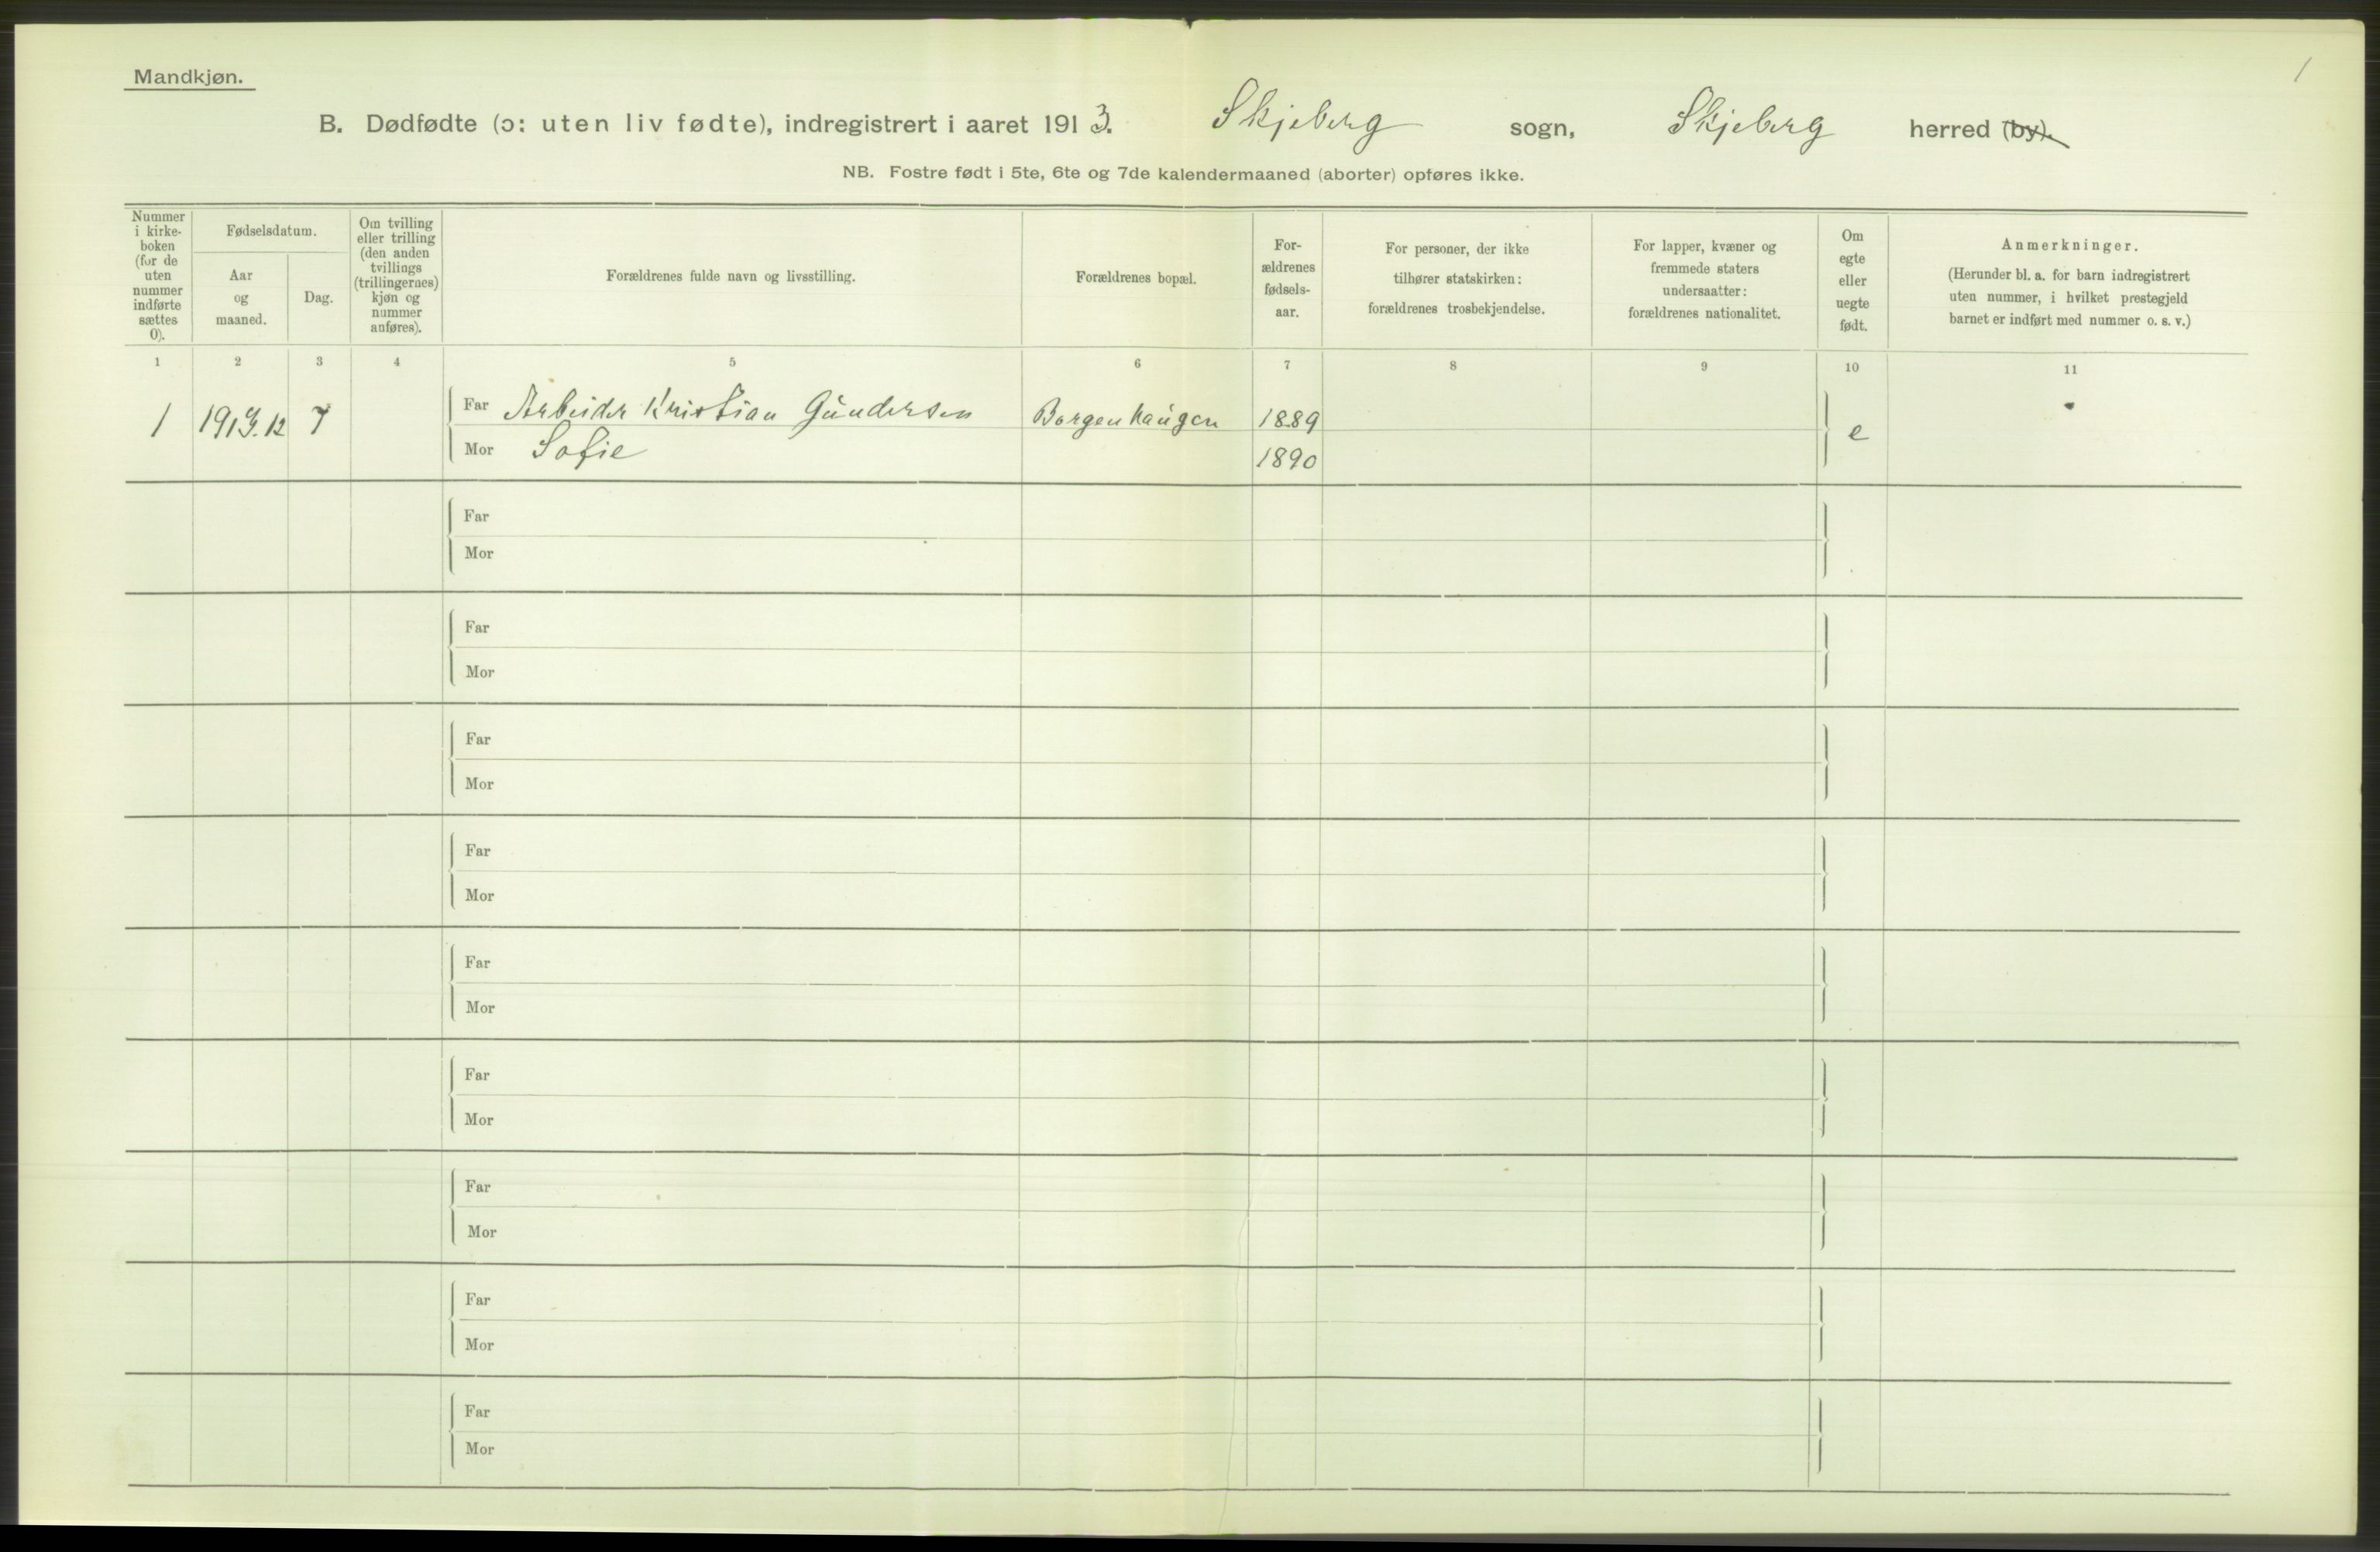 Mandkjøn.
1
B. Dødfødte (ɔ: uten liv fødte), indregistrert i aaret 1913. Skjeberg sogn, Skjeberg herred (by).
NB. Fostre født i 5te, 6te og 7de kalendermaaned (aborter) opføres ikke.
Nummer
i kirke-
boken
(for de
uten
nummer
indførte
sættes
0).
Fødselsdatum.
Aar
og
maaned.
Dag.
Om tvilling
eller trilling
(den anden
tvillings
(trillingernes)
kjøn og
nummer
anføres).
Forældrenes fulde navn og livsstilling.
Forældrenes bopæl.
For-
ældrenes
fødsels-
aar.
For personer, der ikke
tilhører statskirken:
forældrenes trosbekjendelse.
For lapper, kvæner og
fremmede staters
undersaatter:
forældrenes nationalitet.
Om
egte
eller
uegte
født.
Anmerkninger.
(Herunder bl. a. for barn indregistrert
uten nummer, i hvilket prestegjeld
barnet er indført med nummer o. s. v.)
1 2 3 4 5 6 7 8 9 10 11
1 12 7 Far Arbeider Kristian Gundersen Borgenhaugen 1889 e
Mor Sofie 1890
Far
Mor
Far
Mor
Far
Mor
Far
Mor
Far
Mor
Far
Mor
Far
Mor
Far
Mor
Far
Mor